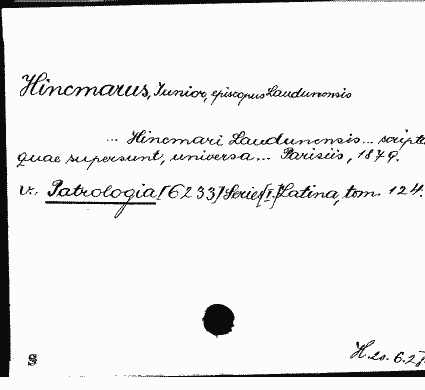 Hincmarus, Junior, episcopus Laudunensis
... Hincmari Laudunensis ... scripta
quae supersunt, universa ... Parisiis, 1879.
v. Patrologia [6233] Series [I.] Latina, tom. 124.
S
H. 20. 6. 28